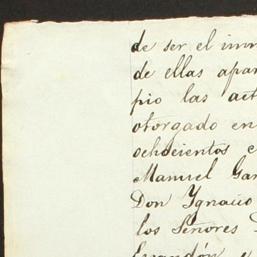 de ser el inm
de ellas apar
pio las act
otorgado en
ochocientos c
Manuel Gar
Don Ygnacio
los Señores